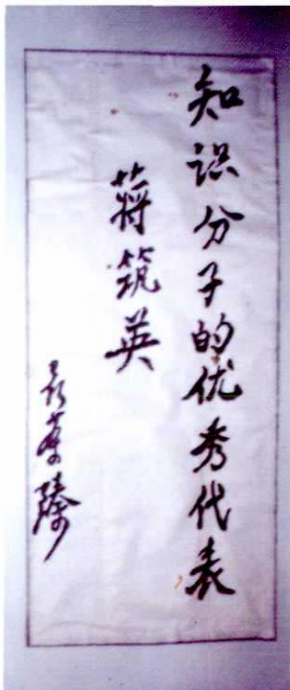 知识分子的优秀代表
蒋筑英
聂荣臻